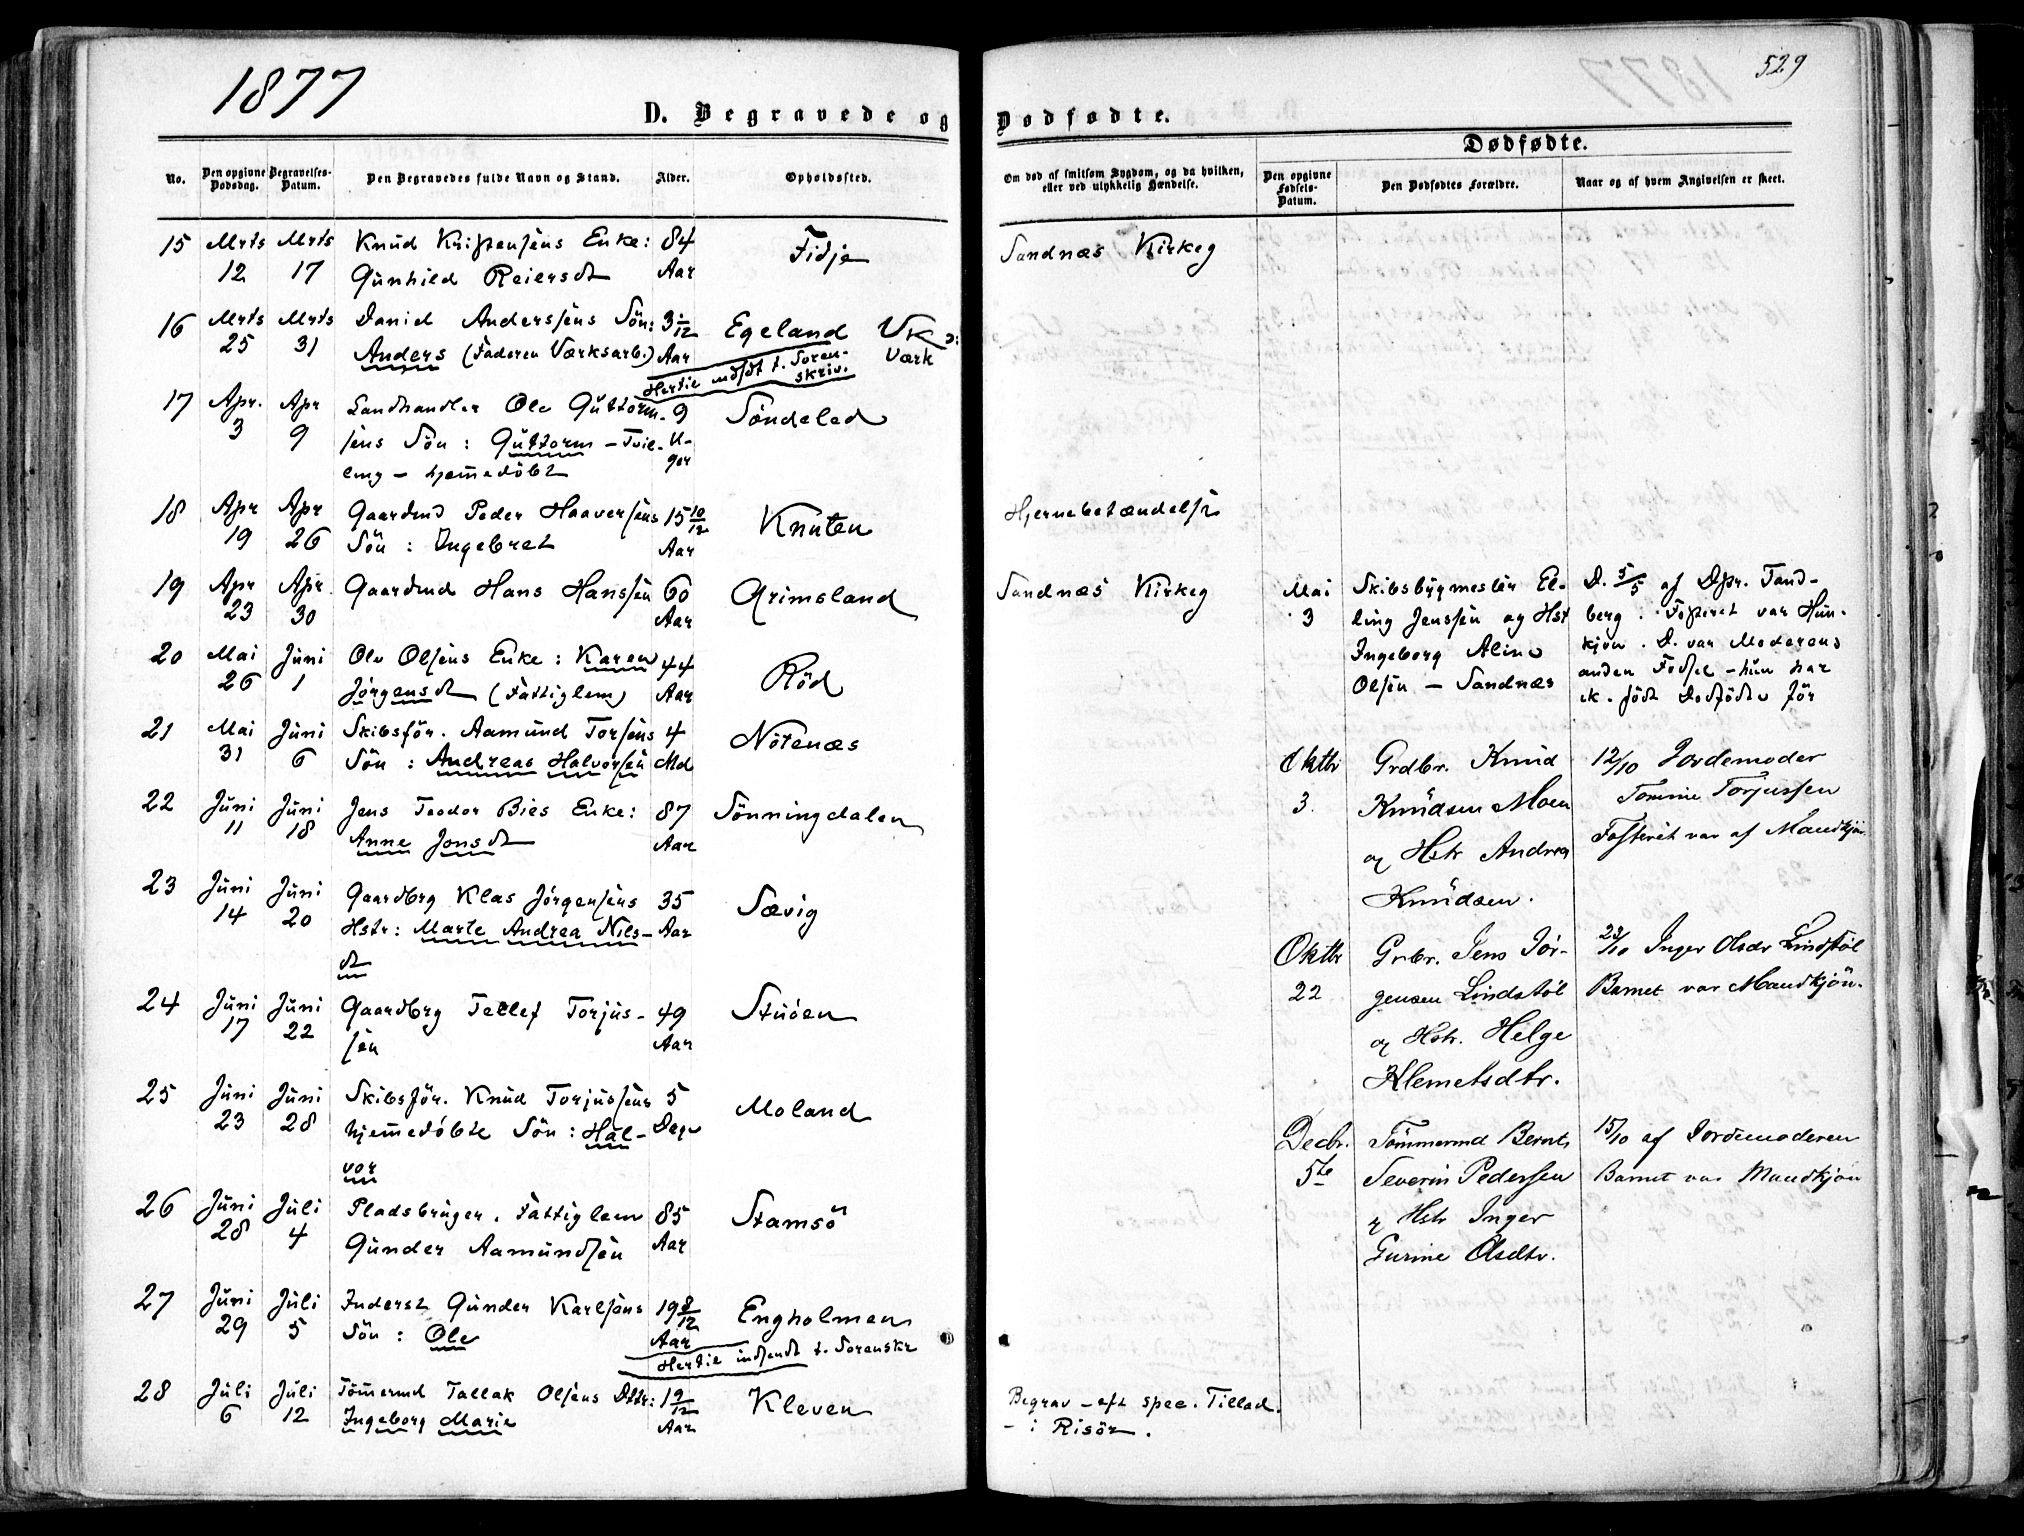 1877
529
D. Begravede og Dødfødte.
Dødfødte.
No.
Den opgivne Dødsdag.
Begravelses-Datum.
Den Begravedes fulde Navn og Stand.
Alder.
Opholdssted.
Om død af smitsom Sygdom, og da hvilken, eller ved ulykkelig Hændelse.
Den opgivne Fødsels-Datum.
Den Dødfødtes Forældre.
Naar og af hvem Angivelsen er skeet.
15 Mrts Mrts Knud Krispensens Enke: 84 Fidje Sandnæs Kirkeg
12 17 Gunhild Reiersdt Aar
16 Mrts Mrts Daniel Anderssens Sön: 3 1/12 Egeland
25 31 Anders (Faderen Værksarb.) Aar Værk
Hertil indsdt t. Soren-
skriv.
17 Apr. Apr Landhandler Ole Guttorm- 9 Söndeled
3 9 sens Sön: Guttorm – Tvil- U-
ling – hjemmedöbt ger
18 Apr Apr Gaardmd Peder Haaversens 15 10/12 Knuten Hjernebetændelse
19 26 Sön: Ingebret Aar
19 Apr Apr. Gaardmd Hans Hanssen 60 Grimsland Sandnæs Kirkeg
23 30 Aar
20 Mai Juni Ole Olsens Enke: Karen 44 Röd
26 1 Jørgensdt (Fattiglem) Aar
21 Mai Juni Skibsför. Aamund Torsens 4 Nötenæs
31 6 Sön: Andreas Halvorsen Md
22 Juni Juni Jens Teodor Bies Enke: 87 Sönningdalen
11 18 Anne Jonsdt Aar
23 Juni Juni Gaardbrg Klas Jørgensens 35 Sævig
14 20 Hstr: Marte Andrea Nils- Aar
dt
24 Juni Juni Gaardbrg Tellef Torjus- 49 Stuöen
17 22 sen Aar
25 Juni Juni Skibsför. Knud Torjussens 5 Moland
23 28 hjemmedöbte Sön: Hal- Dage
vor
26 Juni Juli Pladsbruger. Fattiglem 85 Stamsö
28 4 Gunder Aamundsen Aar
27 Juni Juli Inderst Gunder Karlsens 19 8/12 Engholmen
29 5 Sön: Ole Aar
Hertil indsendt t. Sorenskr
28 Juli Juli Tömermd Tallak Olsens Dttr: 1 9/12 Kleven Begrav – eft spec. Tillad.
6 12 Ingeborg Marie Aar – i Risör.
Mai Skibsbygmester El- D. 5/5 af Dpr. Tand-
3 ling Jenssen og Hst berg. Fosteret var Hun-
Ingeborg Aline kjön. D. var Moderens
Olsen – Sandnæs anden Fødsel – hun har
ik. födt Dødfödte för
Oktbr Grdbr. Knud 12/10 Jordemoder
3. Knudsen Moen Tomine Torjussen
og Hstr Andrea Fosteret var af Mandkjön
Knudsen.
Oktbr Grbr. Jens Jör- 23/10 Inger Olsdr Lindstöl
22 gensen Lindstöl Barnet var Mandkjön.
og Hstr. Helge
Klemetsdtr.
Decbr. Tömmermd Bernt 15/10 af Jordemoderen
5te Severin Pedersen Barnet var Mandkjön
og Hstr Inger
Gurine Olsdtr.